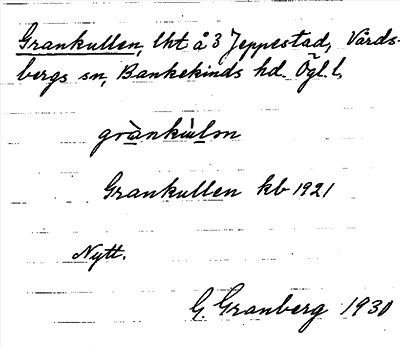 Grankullen, lht å 3 Jeppestad, Vårds-
bergs sn, Bankekinds hd. Ögl. l.
grànkùlən
Grankullen kb 1921
Nytt.
G. Granberg 1930